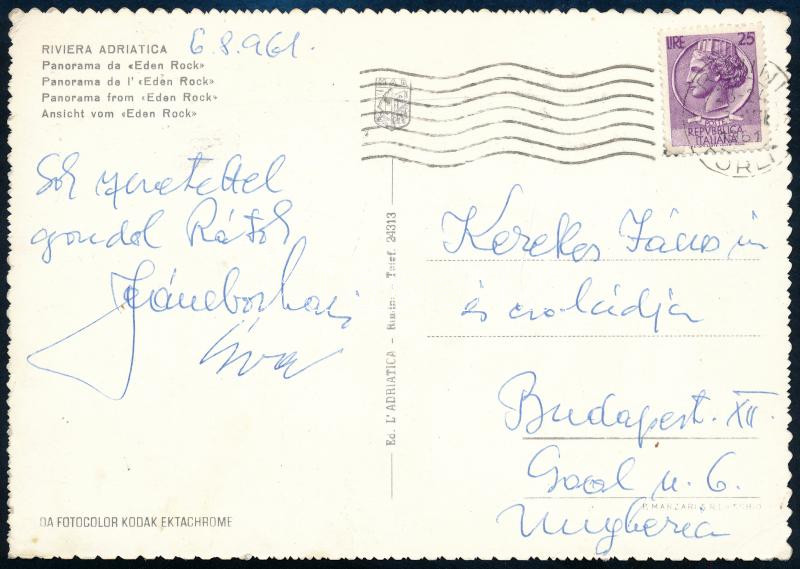 RIVIERA ADRIATICA
6.8.961.
Panorama da «Eden Rock»
Panorama de l'«Eden Rock»
Panorama from «Eden Rock»
Ansicht vom «Eden Rock»
LIRE 25
REPVBBLICA
ITALIANA
Sok szeretettel
gondol Rátok
Éva
Kerekes János
és családja
Budapest. XII.
Goal u. 6.
Ungheria
Ed. L'ADRIATICA - Rimini - Telef. 24313
DA FOTOCOLOR KODAK EKTACHROME